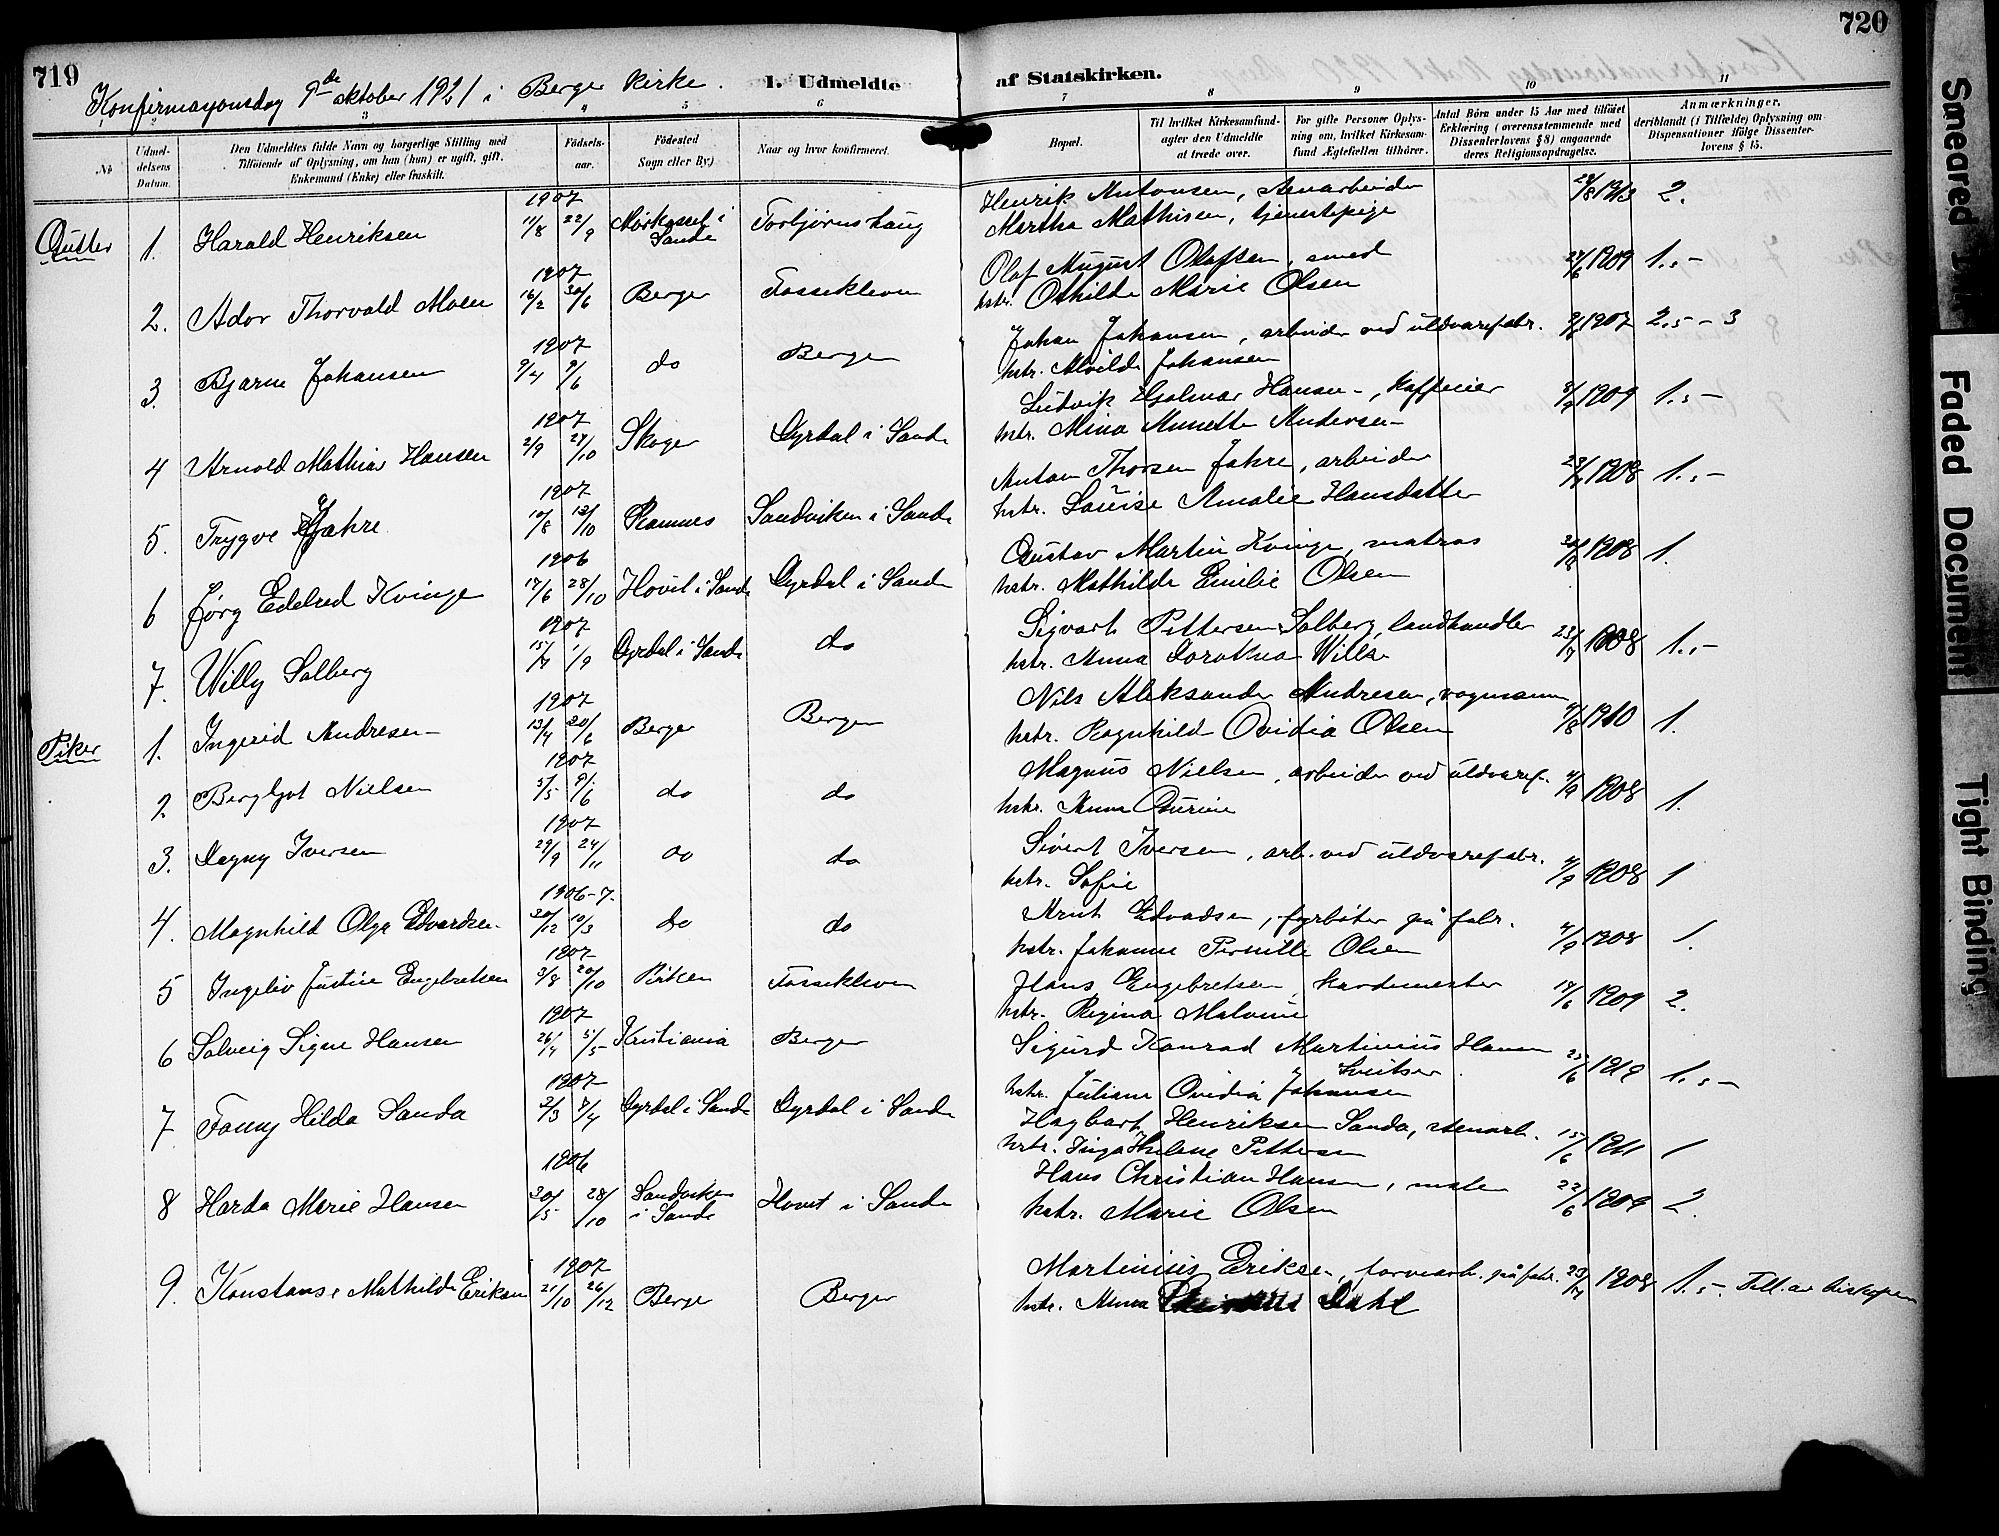 719
Konfirmasjonsdag 9de oktober 1921 i Berger kirke.
1. Udmeldte
af Statskirken.
720
3 4 5 6 7 8 9 10 11
No
Udmeldelsens Datum.
Den Udmeldtes fulde Navn og borgerlige Stilling med Tilføiende af Oplysning, om han (hun) er ugift, gift, Enkemand (Enke) eller fraskilt.
Fødselsaar.
Fødested
Sogn eller By)
Naar og hvor konfirmeret.
Bopæl.
Til hvilket Kirkesamfundagter den Udmeldte at træde over.
For gifte Personer Oplysning om, hvilket Kirkesamfund Ægtefællen tilhører.
Antal Børn under 15 Aar med tilføiet Erklæring (overensstemmende med Dissenterlovens § 8) angaaende deres Religionsopdragelse.
Anmærkninger, deriblandt (i Tilfælde) Oplysning om Dispensationer ifølge Dissenterlovens § 15.
Gutter
1. Harald Henriksen 1907 11/8 22/9 i Sande Torbjørnshaug Henrik Antonsen, stenarbeider 1913 2.
Martha Mathisen, tjenestepige
2. Ador Thorvald Moen 1907 16/2 30/6 Berger Fossekleven Olaf August Olafsen, smed 1909 1.-
hstr. Othilde Marie Olsen
3. Bjarne Johansen 1907 9/4 9/6 do Berger Johan Johansen, arbeider ved uldvarefabr. 1907 2.- - 3
hstr. Alvilde Johansen
4 Arnold Mathias Hansen 1907 2/9 27/10 Skoger Gyrdal i Sande Ludvik Hjalmar Hansen, 1909 1.-
hstr. Mina Annette Andersen
5. Trygve Jahre 1907 10/8 13/10 Ramnes Sandviken i Sande Anton Thorsen Jahre, arbeider 1908 1.-
hstr. Louise Amalie Hansdatter
6 Jørg Edelred Kvinge 1906 17/6 28/10 i Sande Gyrdal i Sande Gustav Martin Kvinge, matros 1908 1.
hstr. Mathilde Emilie Olsen
7. Willy Solberg 1907 1/9 Gyrdal i Sande do Sigvart Pettersen Solberg, landhandler 1908 1.-
hstr. Anna Dorothea Wille
Piker
1. Ingerid Andresen 1907 13/4 20/6 Berger Berger Nils Aleksander Andresen, vognmann 1910 1.
hstr. Ragnhild Ovidia Olsen
2 Bergljot Nielsen 1907 5/5 9/6 do do Magnus Nielsen, arbeider ved uldvaref. 4/9 1908 1.
hstr. Anna Gurine
3. Dagny Iversen 1907 29/9 24/11 do do Sivert Iversen, arb. ved uldvarefabr. 4/9 1908 1
hstr. Sofie
4. Magnhild Olga Edvardsen 1906-7. 30/12 10/3 do do Arnt Edvadsen, fyrbøter på fabr. 4/9 1908 1.
hstr. Johanne Pernille Olsen
5 Ingeliv Justine Engebretsen 1907 3/8 20/10 Fossekleven Hans Engebretsen, kardemester 1909 2.
hstr. Regina Malvine
6 Solveig Signe Hansen 1907 26/4 5/5 Kristiania Berger Sigurd Konrad Martinius Hansen 1.-
hstr. Juliane Ovidia Johansen
7 Fanny Hilda Sanda 1907 2/3 7/4 Gyrdal i Sande Gyrdal i Sande Hagbart Henriksen Sanda, stenarb. 15/6 1911 1
hstr. Inga Helene Pettersen
8 Harda Marie Hansen 1906 30/5 28/10 Sandviken i Sande i Sande Hans Christian Hansen, maler 22/6 1909 2.
hstr. Marie Olsen
9. Konstanse Mathilde Eriksen 1907 21/10 26/12 Berger Berger Martinius Eriksen, på fabr. 1908 1.- Till. av biskopen
hstr. Anna Dahl
Smeared Ink
Faded Document
Tight Binding